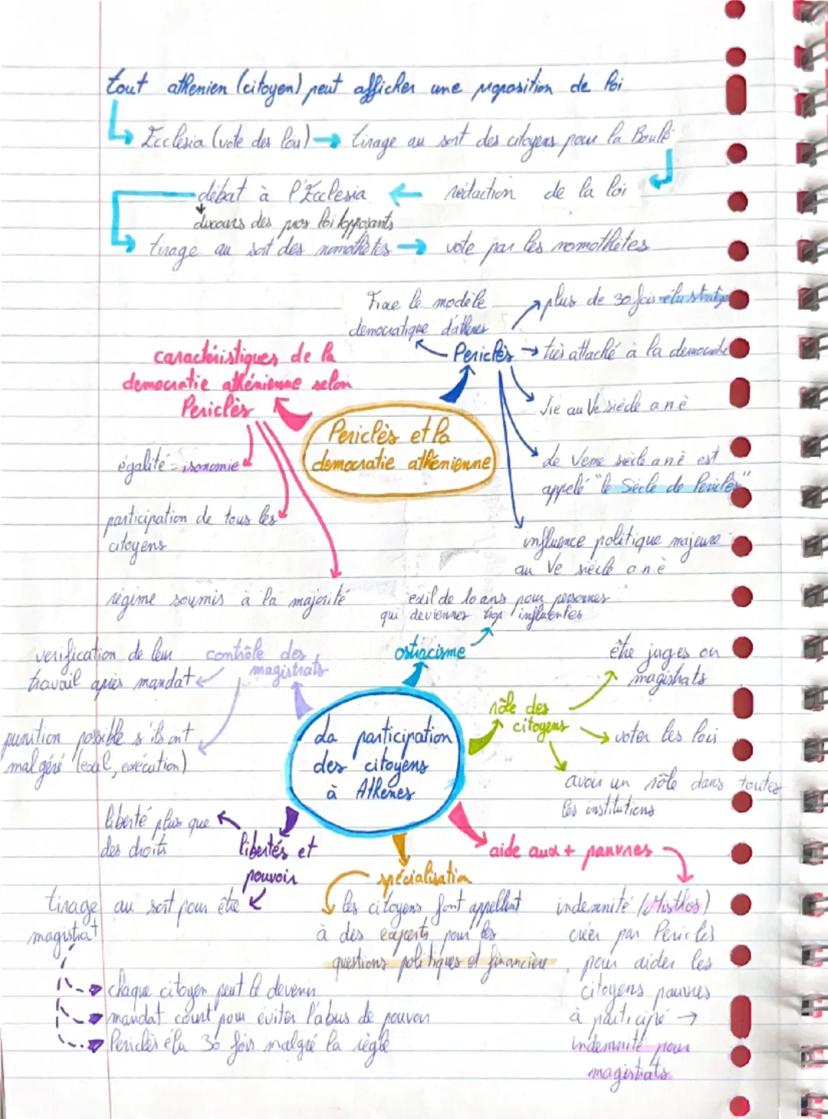 tout athenien (citoyen) peut afficher une proposition de loi
Ecclesia (vote des lois) → tirage au sort des citoyens pour la Boulè
débat à l'Ecclesia ← rédaction de la loi
discours des pros loi/opposants
tirage au sort des nomothètes → vote par les nomothètes
Fixe le modèle
democratique d'athènes
plus de 30 fois élu stratège
Periclès → très attaché à la democratie
caractéristiques de la
democratie athénienne selon
Periclès
Vie au Ve siècle a n è
Periclès et la
democratie athénienne
égalité = isonomie
de Veme siècle a n è est
appelé "le Siècle de Periclès"
participation de tous les
citoyens
influence politique majeure
au Ve siècle a n è
régime soumis à la majorité
exil de 10 ans pour personnes
qui deviennes trop influentes
ostracisme
verification de leur
travail après mandat
contrôle des
magistrats
être juges ou
magistrats
rôle des
citoyens
voter les lois
punition possible s'ils ont
malgéré (exil, exécution)
La participation
des citoyens
à Athènes
avoir un rôle dans toutes
les institutions
liberté plus que
des droits
libertés et
pouvoir
aide aux + pauvres
spécialisation
tirage au sort pour être
magistrat
les citoyens font appellent
à des experts pour les
questions politiques et financière
indemnité (Misthos)
créer par Périclès
pour aider les
citoyens pauvres
à participé →
indemnité pour
magistrats
chaque citoyen peut le devenir
mandat court pour éviter l'abus de pouvoir
Periclès élu 30 fois malgré la règle